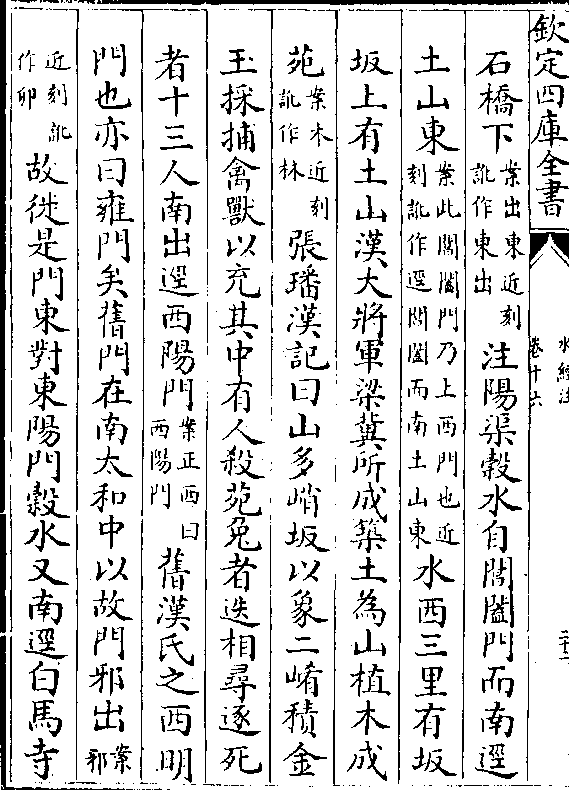 欽定四庫全書
水經注
卷十六
石橋下案出東近刻訛作東出注陽渠穀水自閶闔門而南逕
土山東案此閶闔門乃上西門也近刻訛作逕閶闔而南土山東水西三里有坂
坂上有土山漢大將軍梁冀所成築土為山植木成
苑案木近刻訛作林張璠漢記曰山多峭坂以象二崤積金
玉採捕禽獸以充其中有人殺苑兎者迭相尋逐死
者十三人南出逕西陽門案正西曰西陽門舊漢氏之西明
門也亦曰雍門矣舊門在南太和中以故門邪出案邪
近刻訛作卯故徙是門東對東陽門穀水又南逕白馬寺